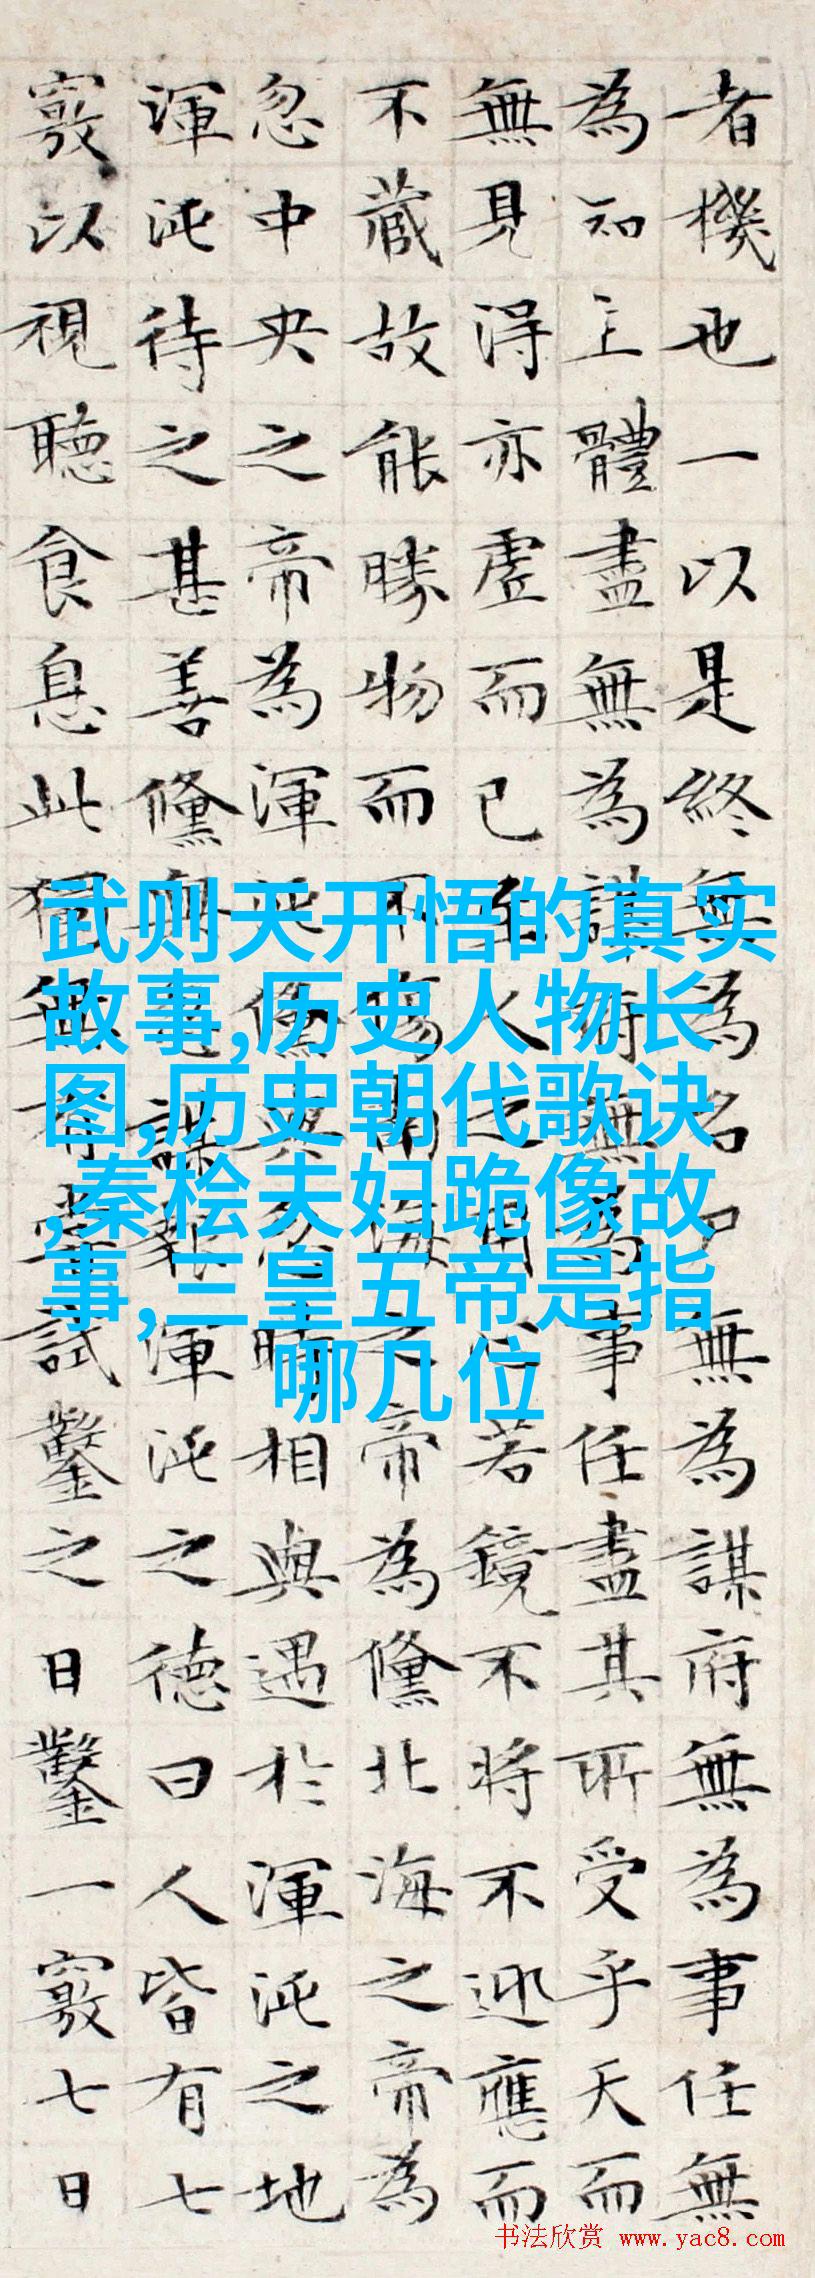 者機也一以是終無為名尸無為謀府無為事任無
為知主體盡無為謀術無為事任盡其所受乎天而
無見得亦虛而已至人之用心若鏡不將不迎應而
不藏故能勝物而不傷南海之帝為儵北海之帝為
忽中央之帝為渾沌儵與忽時相與遇於渾沌之地
渾沌待之甚善儵與忽謀報渾沌之德曰人皆有七
竅以視聽食息此獨無有嘗試鑿之日鑿一竅七日
武则天开悟的真实
故事,历史人物长
图,历史朝代歌诀
,秦桧夫妇跪像故
事,三皇五帝是指
哪几位
书法欣赏 www.yac8.com